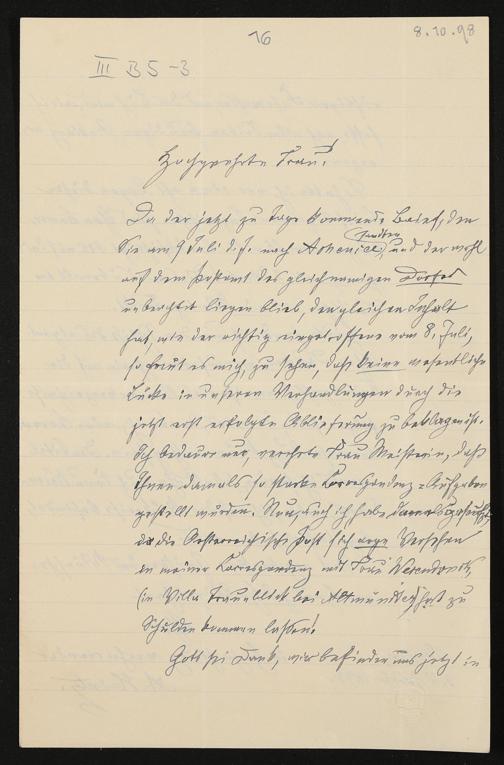 16
8.10.98
III B 5 - 3
Hochgeehrte Frau!
Da der jetzt zu Tage kommende Brief, den
Sie am 9 Juli d. J. nach sandten, und der wohl
auf dem Postamt des gleichnamigen Dorfes
unbeachtet liegen blieb, den gleichen Inhalt
hat, wie der richtig eingetroffene vom 8. Juli,
so freut es mich, zu sehen, daß keine wesentliche
Lücke in unseren Verhandlungen durch die
jetzt erst erfolgte Ablieferung zu beklagen ist.
Ich bedaure nur, verehrte Frau Meisterin, daß
Ihnen damals so starke Correspondenz-Aufgaben
gestellt wurden. Nun, auch ich habe damals
da die Oesterreichische Post sich arge Versehen
in meiner Correspondenz mit Frau Wesendonk,
(in Villa Traunblick bei Altmünster) hat zu
Schulden kommen lassen!
Gott sei Dank, wir befinden uns jetzt in